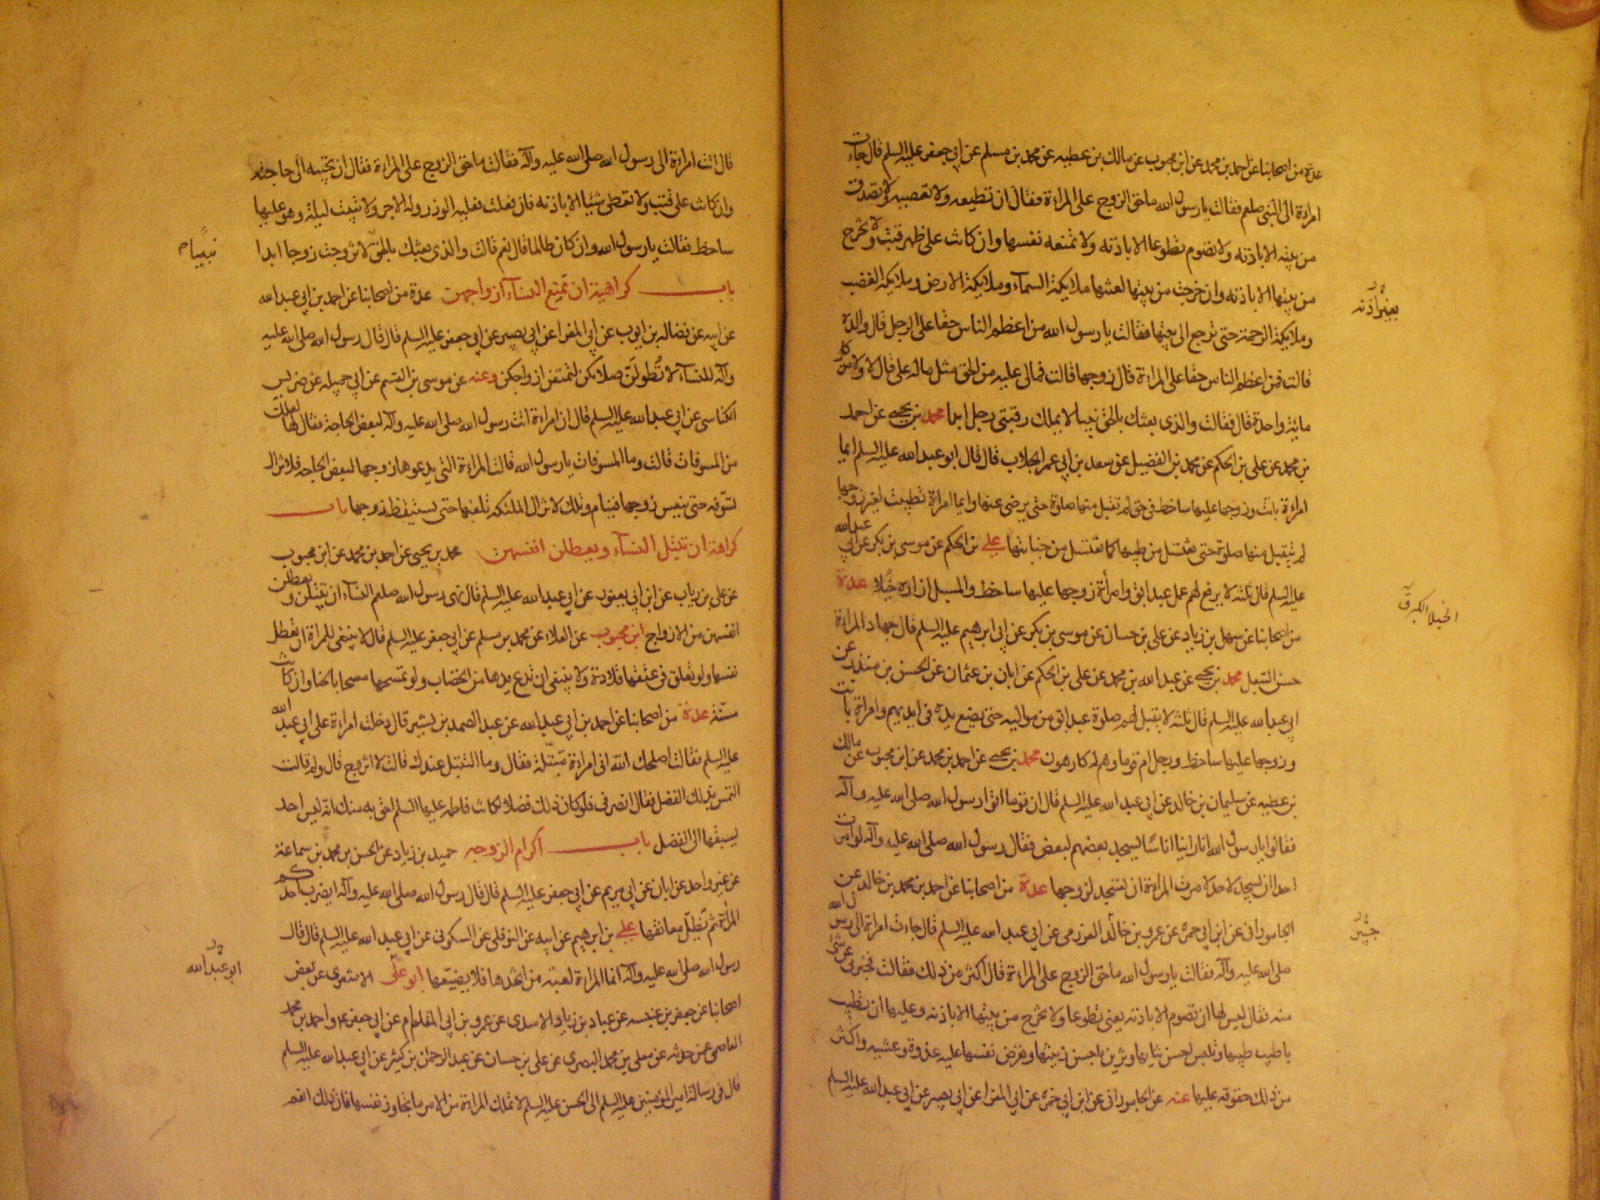 عدة من اصحابنا عن احمد بن محمد عن ابن محبوب عن مالك بن عطيه عن محمد بن مسلم عن ابي جعفر عليه السلم قال جاءت
امراة الى النبي صلعم فقالت يا رسول الله ما حق الزوج على المراءة فقال ان تطيعه ولا تعصيه ولا تصدق
من بيته الا باذنه ولا تصوم تطوعا الا باذنه ولا تمنعه نفسها وان كانت على ظهر قتب ولا تخرج
من بيتها الا باذنه وان خرجت من بيتها لعنتها ملايكة السمآء وملايكة الارض وملايكة الغضب
وملايكة الرحمة حتى ترجع الى بيتها فقالت يا رسول الله من اعظم الناس حقا على الرجل قال والده
قالت فمن اعظم الناس حقا على المراءة قال زوجها قالت فمالى عليه من الحق مثل ماله على قال لا ولا من كل
مائة واحدة قال فقالت والذى بعثك بالحق نبيا لا يملك رقبتي رجل ابدا محمد بن يحيى عن احمد
بن محمد عن على بن الحكم عن محمد بن الفضيل عن سعد بن ابي عمر الجلاب قال قال ابو عبد الله عليه السلم ايما
امراءة باتت وزوجها عليها ساخط في حق لم تقبل منها صلوة حتى يرضى عنها وايما امراة تطيبت لغير زوجها
لم يقبل منها صلوة حتى تغتسل من طيبها كما تغتسل من جنابتها على بن الحكم عن موسى بن بكر عن ابي عبد الله
عليه السلم قال ثلثة لا يرفع لهم عمل عبد ابق وامرأة زوجها عليها ساخط والمسبل ازاره خيلا عدة
من اصحابنا عن سهل بن زياد عن على بن حسان عن موسى بن بكر عن ابي ابرهيم عليه السلم قال جهاد المراءة
حسن التبعل محمد بن يحيى عن عبد الله بن محمد عن على بن الحكم عن ابان بن عثمان عن الحسن بن منذر عن
ابي عبد الله عليه السلم قال ثلثة لا يقبل لهم صلوة عبد ابق من مواليه حتى يضع يده في ايديهم وامراة باتت
وزوجها عليها ساخط ورجل ام قوما وهم له كارهون محمد بن يحيى عن احمد بن محمد عن ابن محبوب عن مالك
بن عطيه عن سليمان بن خالد عن ابي عبد الله عليه السلم قال ان قوما اتوا رسول الله صلى الله عليه وآله
فقالوا يا رسول الله انا راينا اناسا يسجد بعضهم لبعض فقال رسول الله صلى الله عليه وآله لو امرت
احدا ان يسجد لاحد لامرت المراءة ان تسجد لزوجها عدة من اصحابنا عن احمد بن محمد بن خالد عن
الجاموراني عن ابن ابي حمزة عن عمرو بن خالد العزرمى عن ابي عبد الله عليه السلم قال جاءت امراة الى رسول الله
صلى الله عليه وآله فقالت يا رسول الله ما حق الزوج على المراءة قال اكثر من ذلك فقالت فخبرني عن شيء
منه فقال ليس لها ان تصوم الا باذنه يعني تطوعا ولا تخرج من بيتها الا باذنه وعليها ان تطيب
باطيب طيبها وتلبس احسن ثيابها وتزين باحسن زينتها وتعرض نفسها عليه غدوة وعشيه واكثر
من ذلك حقوقه عليها عنه عن الجاموراني عن ابن ابي حمزة عن ابي المغرا عن ابي بصير عن ابي عبد الله عليه السلم
بغير اذنه
الخيلا الكبر ق
خبر
قال اتت امراءة الى رسول الله صلى الله عليه وآله فقالت ما حق الزوج على المراءة فقال ان تجيبه الى حاجته
وان كانت على قتب ولا تعطى شيئا الا باذنه فان فعلت فعليه الوزر وله الاجر ولا تبيت ليلة وهو عليها
ساخط فقالت يا رسول الله وان كان ظالما قال نعم قالت والذى بعثك بالحق لا تزوجت زوجا ابدا
باب كراهية ان تمنع النسآء ازواجهن عدة من اصحابنا عن احمد بن ابي عبد الله
عن ابيه عن فضاله بن ايوب عن ابي المغرا عن ابي بصير عن ابي جعفر عليه السلم قال قال رسول الله صلى الله عليه
وآله للنسآء لا تطولن صلاتكن لتمنعن ازواجكن وعنه عن موسى بن القسم عن ابي جميله عن ضريس
الكناسى عن ابي عبد الله عليه السلم قال ان امراءة اتت رسول الله صلى الله عليه وآله لبعض الحاجة فقال لها لعلك
من المسوفات قالت وما المسوفات يا رسول الله قالت المراءة التى يدعوها زوجها لبعض الحاجه فلا تزال
تسوفه حتى ينعس زوجها فينام وتلك لا تزال الملئكة تلعنها حتى يستيقظ زوجها باب
كراهة ان تتبتل النسآء ويعطلن انفسهن محمد بن يحيى عن احمد بن محمد عن ابن محبوب
عن على بن رياب عن ابن ابي يعفور عن ابي عبد الله عليه السلم قال نهى رسول الله صلعم النسآء ان يتبتلن ويعطلن
انفسهن من الازواج ابن محبوب عن العلاء عن محمد بن مسلم عن ابي جعفر عليه السلم قال لا ينبغي للمراة ان تعطل
نفسها ولو تعلق في عنقها قلادة ولا ينبغي ان تدع يدها من الخضاب ولو تمسحها مسحا بالحنا وان كانت
مسنة عدة من اصحابنا عن احمد بن ابي عبد الله عن عبد الصمد بن بشير قال دخلت امراءة على ابي عبد الله
عليه السلم فقالت اصلحك الله اني امراءة متبتلة فقال وما التبتل عندك قالت لا اتزوج قال ولم قالت
التمس بذلك الفضل فقال انصرفى فلو كان ذلك فضلا لكانت فاطمه عليها السلم احق به منك انه ليس احد
يسبقها الى الفضل باب اكرام الزوجه حميد بن زياد عن الحسن بن محمد بن سماعة
عن غير واحد عن ابان عن ابي مريم عن ابي جعفر عليه السلم قال قال رسول الله صلى الله عليه وآله ايضرب احدكم
المراءة ثم يظل معانقها على بن ابرهيم عن ابيه عن النوفلى عن السكوني عن ابي عبد الله عليه السلم قال قال
رسول الله صلى الله عليه وآله انما المراءة لعبة من اتخذها فلا يضيعها ابو على الاشعرى عن بعض
اصحابنا عن جعفر بن عنبسه عن عباد بن زياد الاسدى عن عمرو بن ابي المقدام عن ابي جعفر عم واحمد بن محمد
العاصمى عمن حدثه عن معلى بن محمد البصرى عن على بن حسان عن عبد الرحمن بن كثير عن ابي عبد الله عليه السلم
قال في رسالة امير المؤمنين عليه السلم الى الحسن عليه السلم لا تملك المراءة من الامر ما يجاوز نفسها فان ذلك انعم
نبييا
ابو عبد الله